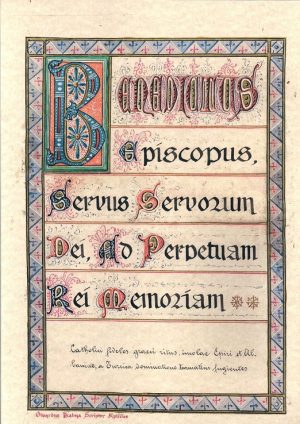 Benedictus
Episcopus,
Servus Servorum
Dei, Ad Perpetuam
Rei Memoriam
Catholici fideles graeci ritus, incolae Epiri et Al-
baniae, a Turcica dominatione familiis fugientes
Scriptor